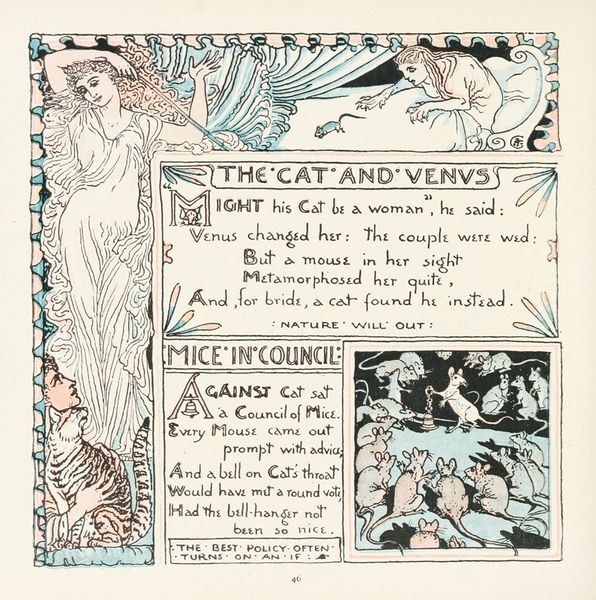 THE · CAT · AND · VENVS
"MIGHT his Cat be a woman", he said:
Venus changed her: the couple were wed:
But a mouse in her sight
Metamorphosed her quite,
And, for bride, a cat found he instead.
: NATURE · WILL · OUT :
MICE · IN · COUNCIL:
AGAINST Cat sat
a Council of Mice.
Every Mouse came out
prompt with advice;
And a bell on Cat's throat
Would have met a round vote,
Had the bell-hanger not
been so nice.
· THE · BEST · POLICY · OFTEN ·
TURNS · ON · AN · IF :
46